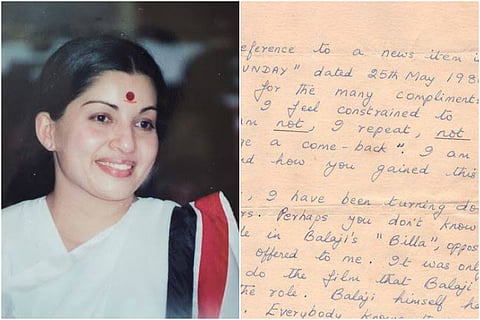 eference to a news item i
UNDAY" dated 25th May 198
for the many compliments
I feel constrained to
am not, I repeat, not
e a come-back". I am
nd how you gained this
I have been turning do
rs. Perhaps you don't know
le in Balaji's "Billa", oppos
offered to me. It was only
do the film that Balaji
the role. Balaji himself ha
Everybody knows